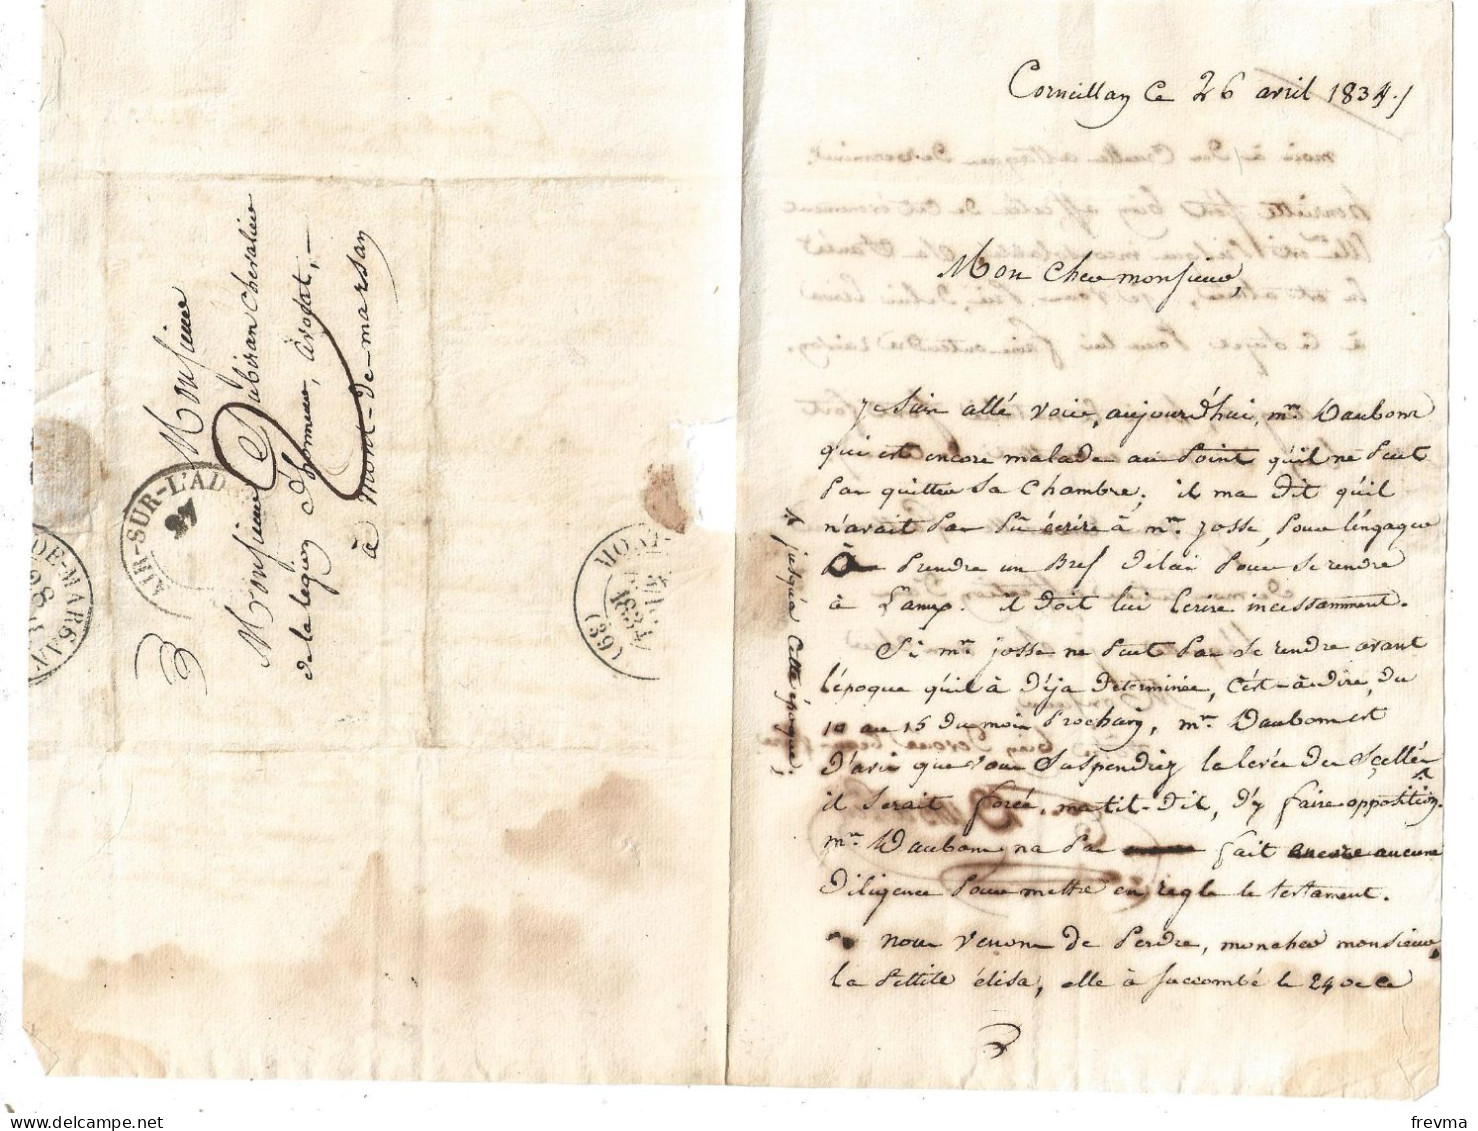 Corneillan ce 26 avril 1834.
Mon cher monsieur,
je suis allé voir, aujourd'hui, mr. Daubons
qui est encore malade au point qu'il ne peut
pas quitter sa chambre; il ma dit qu'il
n'avait pas pû écrire à mr. josse, pour l'engager
à prendre un bref délai pour se rendre
à Lanux. il doit lui écrire incessamment.
Si mr. josse ne peut pas se rendre avant
l'époque qu'il à déja determinée, c'est-à-dire, du
10 au 15 du mois prochain, mr. Daubons est
d'avis que vous suspendiez la levée des scellés
* jusqu'a cette époque;
il serait forcé, ma til-dit, d'y faire opposition.
mr. Daubons na pas fait encore aucune
diligence pour mettre en regle le testament.
nous venons de perdre, mon cher monsieur,
la pettite élisa, elle à succombé le 24 de ce
Monsieur
Monsieur Dubiran chevalier
de la legion d'honneur, avocat,-
à mont-de-marsan
2
AIR-SUR-L'AD
27
DE-MARSAN
28
MO
1834
(39)
frevma